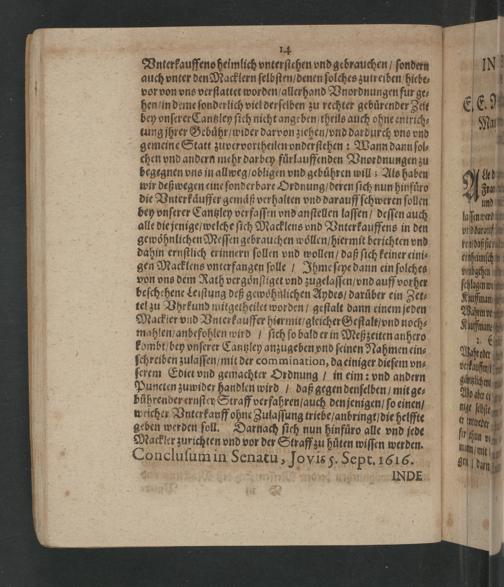 14
Vnterkauffens heimlich vnterstehen vnd gebrauchen / sondern
auch vnter den Macklern selbsten / denen solches zutreiben / hiebe-
vor von vns verstattet worden / allerhand Vnordnungen fürge-
hen / in deme sonderlich viel derselben zu rechter gebürender Zeit
bey vnserer Cantzley sich nicht angeben / theils auch ohne entrich-
tung jhrer Gebühr / wider darvon ziehen / vnd dardurch vns vnd
gemeine Statt zuvervortheilen vnderstehen : Wann dann sol-
chen vnd andern mehr darbey fürlauffenden Vnordnungen zu
begegnen vns in allweg / obligen vnd gebühren will ; Als haben
wir deßwegen eine sonderbare Ordnung / deren sich nun hinfüro
die Vnterkäuffer gemäß verhalten vnd darauff schweren sollen
bey vnserer Cantzley verfassen vnd anstellen lassen / dessen auch
alle diejenige / welche sich Macklens vnd Vnterkauffens in den
gewöhnlichen Messen gebrauchen wöllen / hiermit berichten vnd
dahin ernstlich erinnern sollen vnd wollen / daß sich keiner eini-
gen Macklens vnterfangen solle / Ihme seye dann ein solches
von vns dem Rath vergönstiget vnd zugelassen / vnd auff vorher
beschehene Leistung deß gewöhnlichen Aydes / darüber ein Zet-
tel zu Vhrkund mitgetheilet worden / gestalt dann einem jeden
Mackler vnd Vnterkauffer hiermit / gleicher Gestalt / vnd noch-
mahlen / anbefohlen wird / sich so bald er in Meßzeiten anhero
kombt / bey vnserer Cantzley anzugeben vnd seinen Nahmen ein-
schreiben zulassen / mit der commination, da einiger diesem vn-
serem Edict vnd gemachter Ordnung / in eim : vnd andern
Puncten zuwider handlen wird / daß gegen denselben / mit ge-
bührender ernster Straff verfahren / auch denjenigen / so einen /
welcher Vnterkauff ohne Zulassung triebe / anbringt / die helffte
geben werden soll. Darnach sich nun hinfüro alle vnd jede
Mackler zurichten vnd vor der Straff zu hüten wissen werden.
Conclusum in Senatu, Jovis 5. Sept. 1616.
INDE